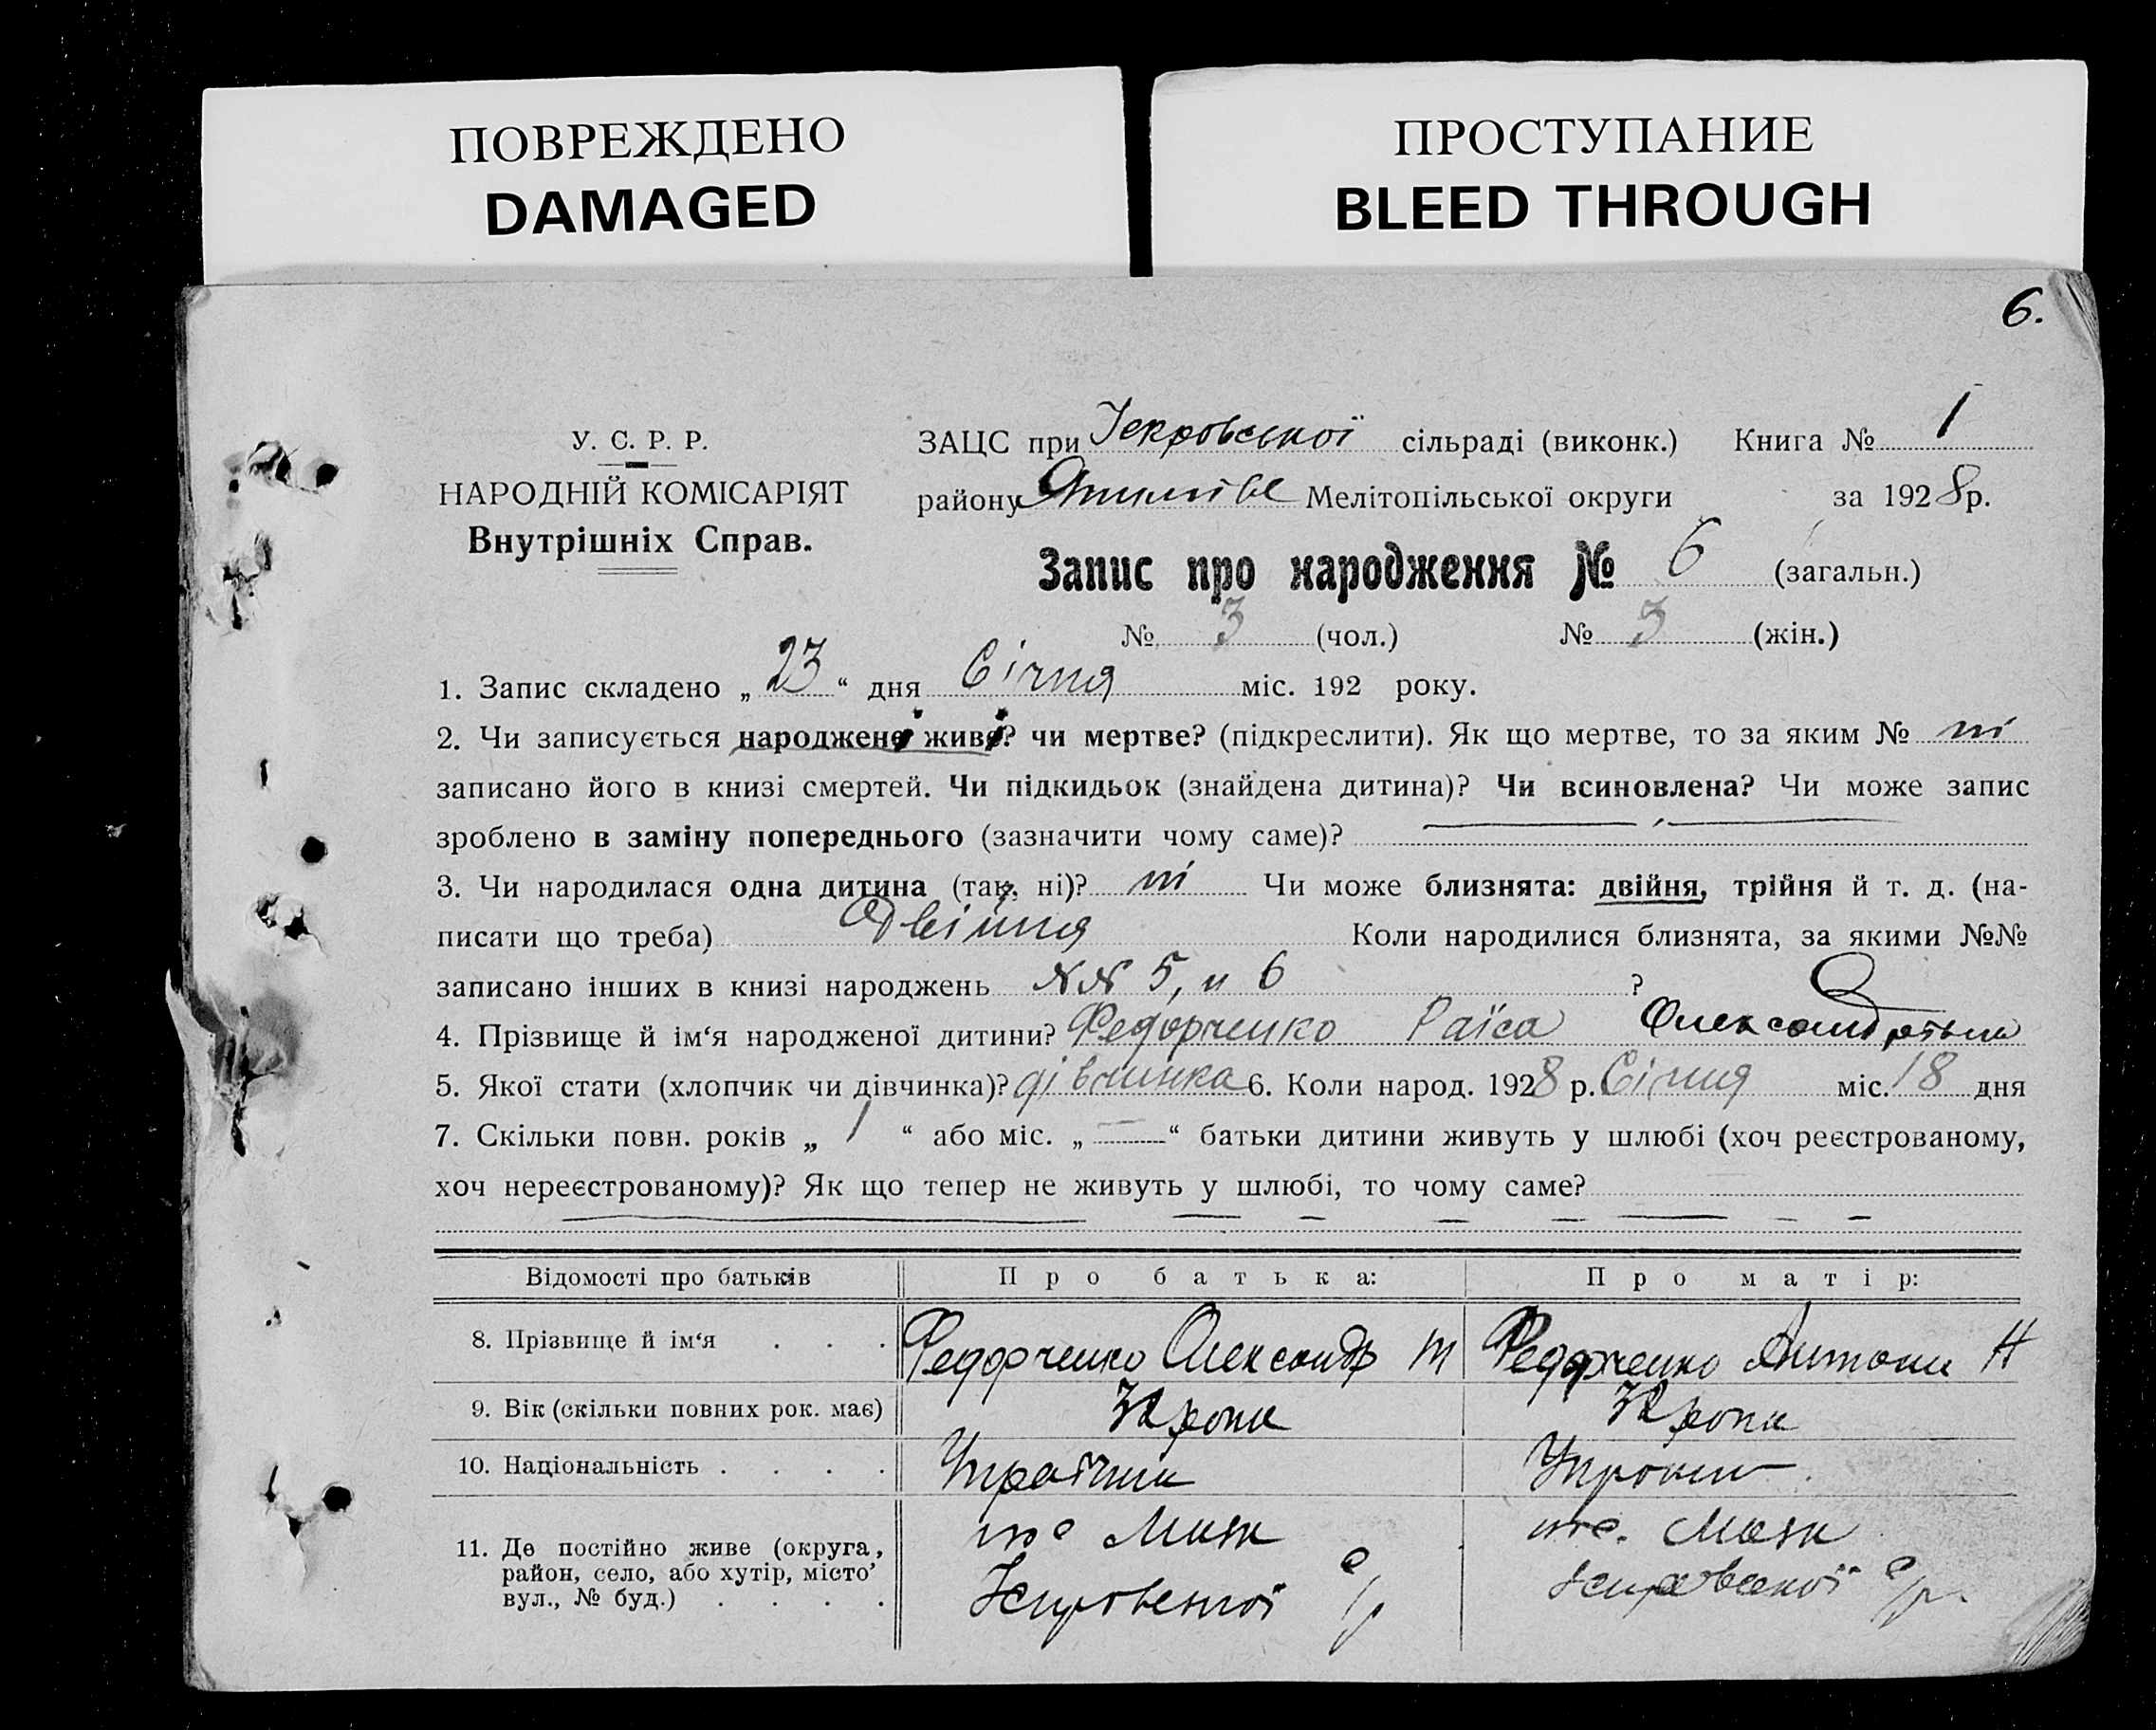 ПОВРЕЖДЕНО
DAMAGED
ПРОСТУПАНИЕ
BLEED THROUGH
6.
У. С. Р. Р.
НАРОДНІЙ КОМІСАРІЯТ
Внутрішніх Справ.
ЗАЦС при Іскровської сільраді (виконк.) Книга № 1
району Мелітопільської округи за 1928 р.
Запис про народження № 6 (загальн.)
№ 3 (чол.) № 3 (жін.)
1. Запис складено „ 23 “ дня Січня міс. 192 року.
2. Чи записується народжені живі? чи мертве? (підкреслити). Як що мертве, то за яким № ні
записано його в книзі смертей. Чи підкидьок (знайдена дитина)? Чи всиновлена? Чи може запис
зроблено в заміну попереднього (зазначити чому саме)?
3. Чи народилася одна дитина (так, ні)? ні Чи може близнята: двійня, трійня й т. д. (на-
писати що треба) Двійня Коли народилися близнята, за якими №№
записано інших в книзі народжень №№ 5, и 6 ?
4. Прізвище й ім‘я народженої дитини? Федорченко Раїса
5. Якої стати (хлопчик чи дівчинка)? дівчинка 6. Коли народ. 1928 р. Січня міс. 18 дня
7. Скільки повн. років „ 1 “ або міс. „ — “ батьки дитини живуть у шлюбі (хоч реєстрованому,
хоч нереєстрованому)? Як що тепер не живуть у шлюбі, то чому саме?
Відомості про батьків Про батька: Про матір:
8. Прізвище й ім‘я . . . Федорченко Олександр М Федорченко Антони Н
9. Вік (скільки повних рок. має) роки роки
10. Національність . . . .
11. Де постійно живе (округа, район, село, або хутір, місто’ вул., № буд.) . . . .
с/р с/р.